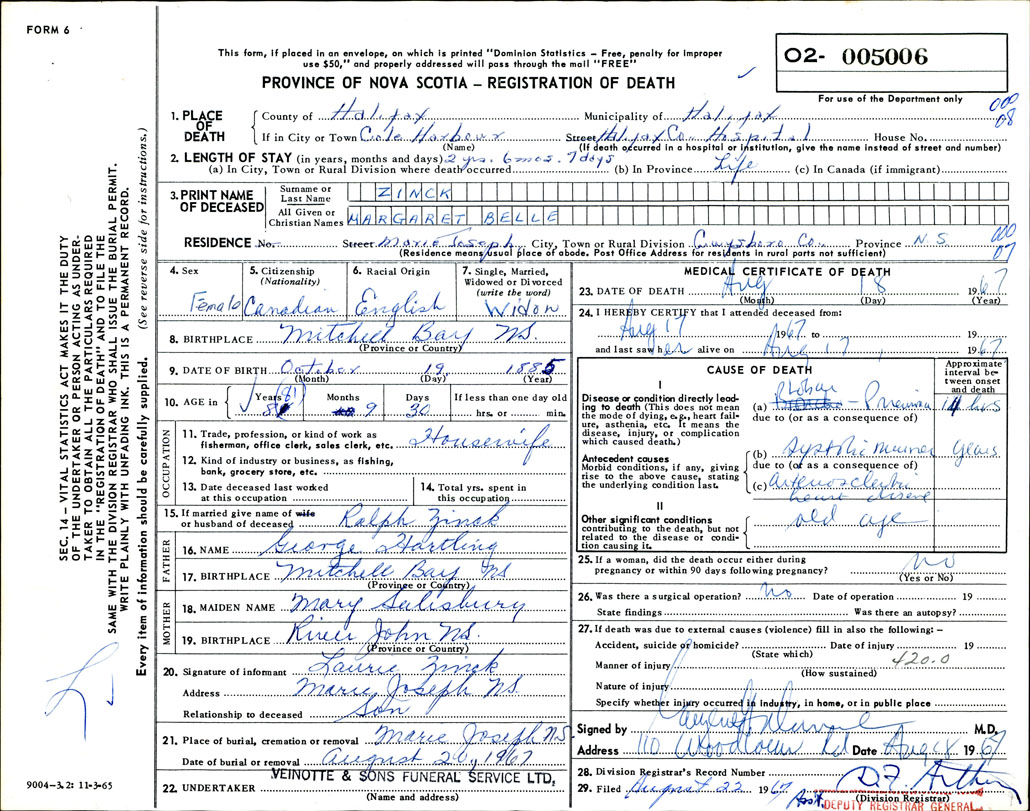 FORM 6
This form, if placed in an envelope, on which is printed "Dominion Statistics – Free, penalty for improper
use $50," and properly addressed will pass through the mail "FREE"
PROVINCE OF NOVA SCOTIA – REGISTRATION OF DEATH
O2- 005006
For use of the Department only
000
08
1. PLACE OF DEATH
County of Halifax Municipality of Halifax
If in City or Town Cole Harbour Street Halifax Co. Hospital House No.
(Name) (If death occurred in a hospital or institution, give the name instead of street and number)
2. LENGTH OF STAY (in years, months and days) 2 yrs. 6 mos. 7 days
(a) In City, Town or Rural Division where death occurred (b) In Province Life (c) In Canada (if immigrant)
3. PRINT NAME OF DECEASED
Surname or Last Name ZINCK
All Given or Christian Names MARGARET BELLE
RESIDENCE No. Street Marie Joseph City, Town or Rural Division Guysboro Co. Province N.S.
000
07
(Residence means usual place of abode. Post Office Address for residents in rural parts not sufficient)
4. Sex Female
5. Citizenship (Nationality) Canadian
6. Racial Origin English
7. Single, Married, Widowed or Divorced (write the word) Widow
8. BIRTHPLACE Mitchell Bay NS.
(Province or Country)
9. DATE OF BIRTH October 19, 1885
(Month) (Day) (Year)
10. AGE in Years (81) Months 9 Days 30 If less than one day old hrs. or min.
OCCUPATION
11. Trade, profession, or kind of work as fisherman, office clerk, sales clerk, etc. Housewife
12. Kind of industry or business, as fishing, bank, grocery store, etc.
13. Date deceased last worked at this occupation
14. Total yrs. spent in this occupation
15. If married give name of wife or husband of deceased Ralph Zinck
FATHER
16. NAME George Hartling
17. BIRTHPLACE Mitchell Bay NS
(Province or Country)
MOTHER
18. MAIDEN NAME Mary Salisbury
19. BIRTHPLACE River John NS.
(Province or Country)
20. Signature of informant Laurie Zinck
Address Marie Joseph NS
Relationship to deceased Son
21. Place of burial, cremation or removal Marie Joseph N.S.
Date of burial or removal August 20, 1967
22. UNDERTAKER VEINOTTE & SONS FUNERAL SERVICE LTD,
(Name and address)
MEDICAL CERTIFICATE OF DEATH
23. DATE OF DEATH Aug 18 1967
(Month) (Day) (Year)
24. I HEREBY CERTIFY that I attended deceased from:
Aug 17 1967 to 19
and last saw her alive on Aug 17, 1967.
CAUSE OF DEATH
Approximate interval between onset and death
I
Disease or condition directly leading to death (This does not mean the mode of dying, e.g., heart failure, asthenia, etc. It means the disease, injury, or complication which caused death.)
(a) Lobar - Pneumonia 14 hrs
due to (or as a consequence of)
Antecedent causes
Morbid conditions, if any, giving rise to the above cause, stating the underlying condition last.
(b) Systolic murmur years
due to (or as a consequence of)
(c) Arteriosclerotic
heart disease
II
Other significant conditions contributing to the death, but not related to the disease or condition causing it. old age
25. If a woman, did the death occur either during pregnancy or within 90 days following pregnancy? No
(Yes or No)
26. Was there a surgical operation? No Date of operation 19
State findings Was there an autopsy?
27. If death was due to external causes (violence) fill in also the following: –
Accident, suicide or homicide? Date of injury 19
(State which) 420.0
Manner of injury
(How sustained)
Nature of injury
Specify whether injury occurred in industry, in home, or in public place
Signed by M.D.
Address 110 Woodlawn Rd Date Aug 18 1967
28. Division Registrar's Record Number
29. Filed August 22 1967
(Division Registrar)
Asst. DEPUTY REGISTRAR GENERAL
SEC. 14 – VITAL STATISTICS ACT MAKES IT THE DUTY
OF THE UNDERTAKER OR PERSON ACTING AS UNDER-
TAKER TO OBTAIN ALL THE PARTICULARS REQUIRED
IN THE "REGISTRATION OF DEATH" AND TO FILE THE
SAME WITH THE DIVISION REGISTRAR WHO SHALL ISSUE THE BURIAL PERMIT.
WRITE PLAINLY WITH UNFADING INK. THIS IS A PERMANENT RECORD.
Every item of information should be carefully supplied. (See reverse side for instructions.)
9004-3.2: 11-3-65